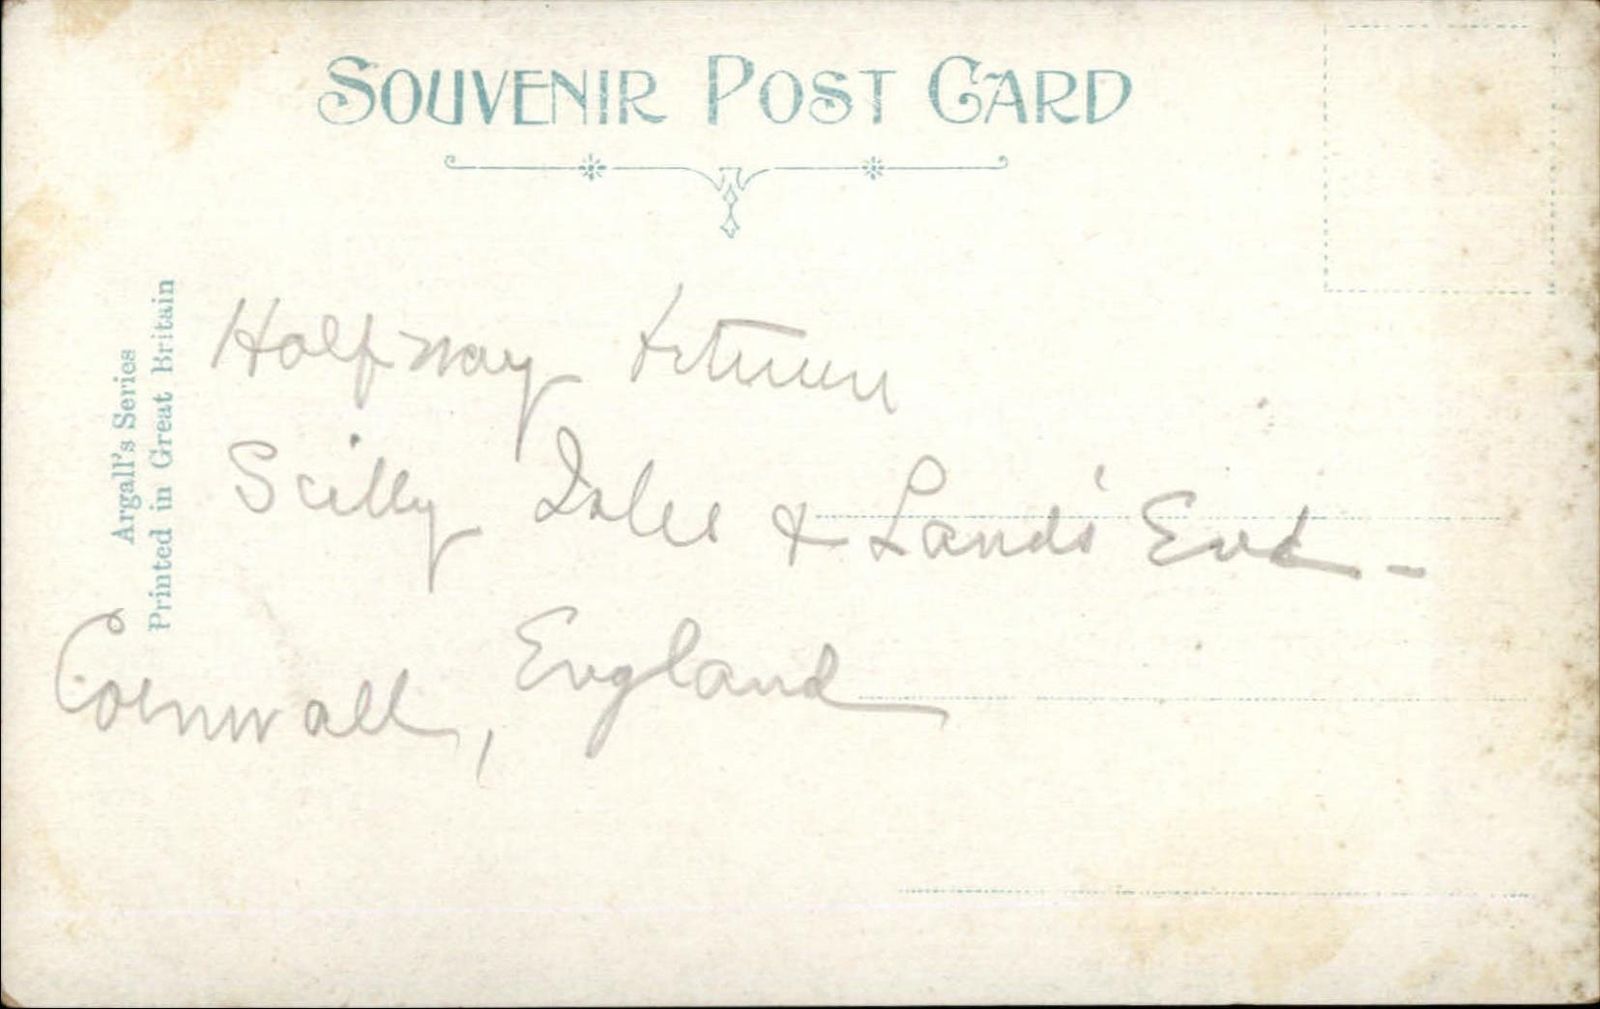 SOUVENIR POST CARD
Argall's Series
Printed in Great Britain
Halfway between
Scilly Isles & Land's End -
Cornwall, England